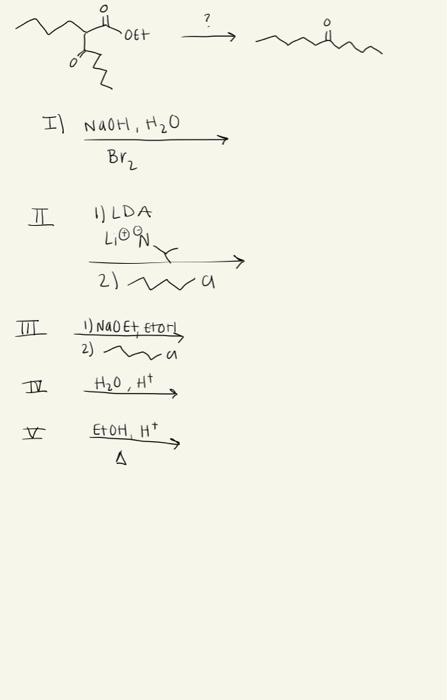 O
OEt
?
O
O
I) NaOH, H₂O
Br₂
II 1) LDA
Li⊕ ⊖N
2) Cl
III 1) NaOEt, EtOH
2) Cl
IV H₂O, H⁺
V EtOH, H⁺
Δ